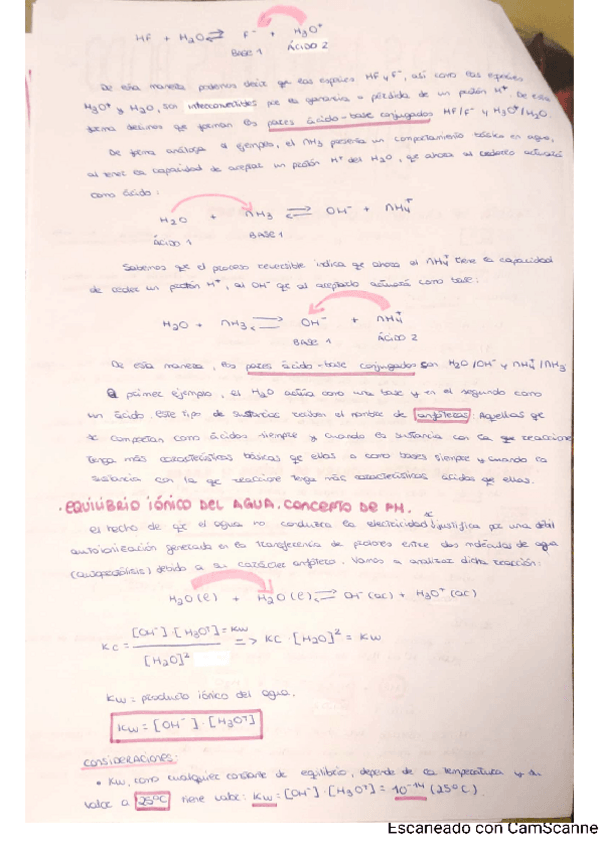 HF + H2O ⇌ F⁻ + H3O⁺
BASE 1 ÁCIDO 2
De esta manera podemos decir que las especies HF y F⁻, así como las especies
H3O⁺ y H2O, son interconvertidas por la ganancia o pérdida de un protón H⁺. De esta
forma decimos qe forman los pares ácido-base conjugados HF/F⁻ y H3O⁺/H2O.
De forma análoga al ejemplo, el NH3 presenta un comportamiento básico en agua,
al tener la capacidad de aceptar un protón H⁺ del H2O, qe ahora al cederlo actuará
como ácido:
H2O + NH3 ⇌ OH⁻ + NH4⁺
ÁCIDO 1 BASE 1
Sabemos qe el proceso reversible indica qe ahora el NH4⁺ tiene la capacidad
de ceder un protón H⁺, al OH⁻ qe al aceptarlo actuará como base:
H2O + NH3 ⇌ OH⁻ + NH4⁺
BASE 1 ÁCIDO 2
De esta manera, los pares ácido-base conjugados son H2O/OH⁻ y NH4⁺/NH3
primer ejemplo, el H2O actúa como una base y en el segundo como
un ácido. Este tipo de sustancias reciben el nombre de anfóteras: Aquellas qe
se comportan como ácidos siempre y cuando la sustancia con la que reaccione
tenga más características básicas qe ellas o como bases siempre y cuando la
sustancia con la qe reaccione tenga más características ácidas qe ellas.
· EQUILIBRIO IÓNICO DEL AGUA. CONCEPTO DE PH.
El hecho de qe el agua no conduzca la electricidad justifica por una débil
autoionización generada en la transferencia de protones entre dos moléculas de agua
(autoprotólisis) debido a su carácter anfótero. Vamos a analizar dicha reacción:
H2O(l) + H2O(l) ⇌ OH⁻(ac) + H3O⁺(ac)
KC = [OH⁻]·[H3O⁺]=KW / [H2O]² => KC·[H2O]² = KW
KW = producto iónico del agua.
KW = [OH⁻]·[H3O⁺]
CONSIDERACIONES:
• KW, como cualquier constante de equilibrio, depende de la temperatura y su
valor a 25ºC tiene valor: KW = [OH⁻]·[H3O⁺] = 10⁻¹⁴ (25ºC).
Escaneado con CamScanne